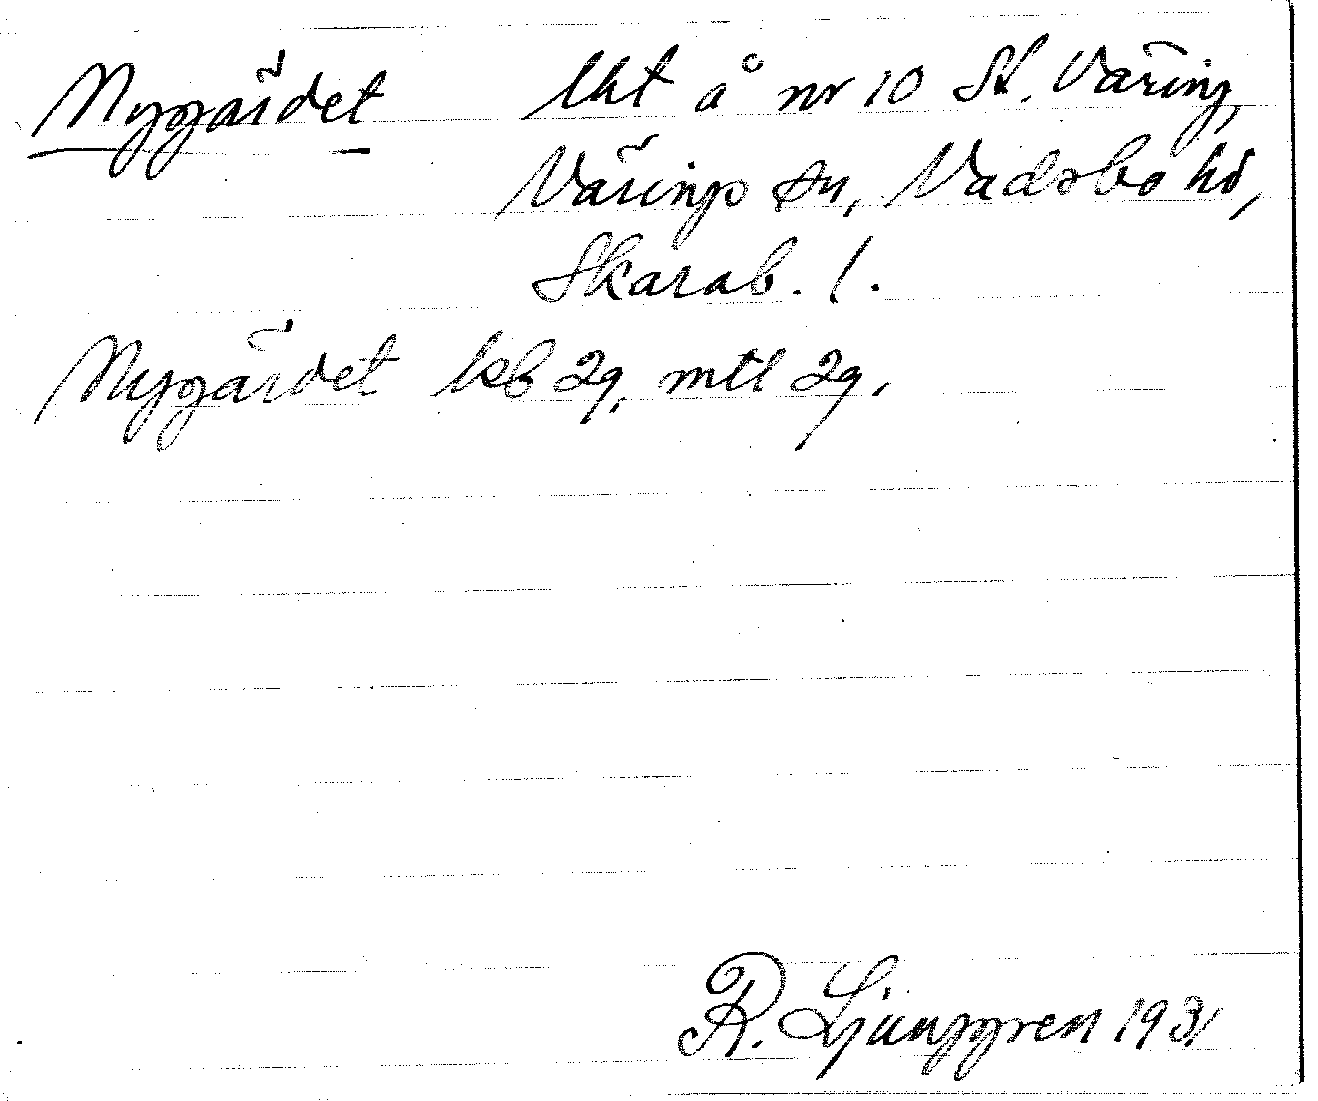 Nygärdet lht å nr 10 St. Väring,
Värings sn, Vadsbo hd,
Skarab. l.
Nygärdet lsb 29, mtl 29.
R. Ljunggren 1931